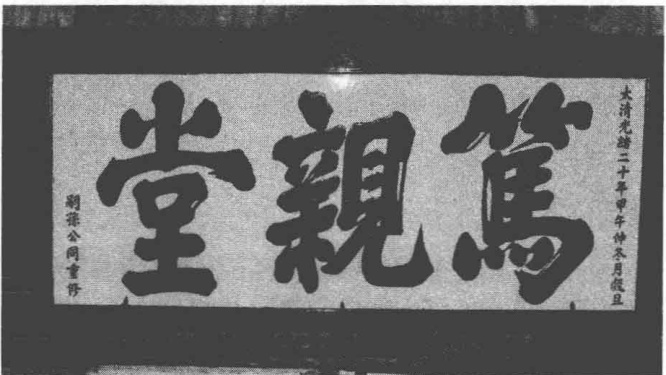 大清光緒二十年甲午仲冬月穀旦
篤親堂
嗣孫公同重修